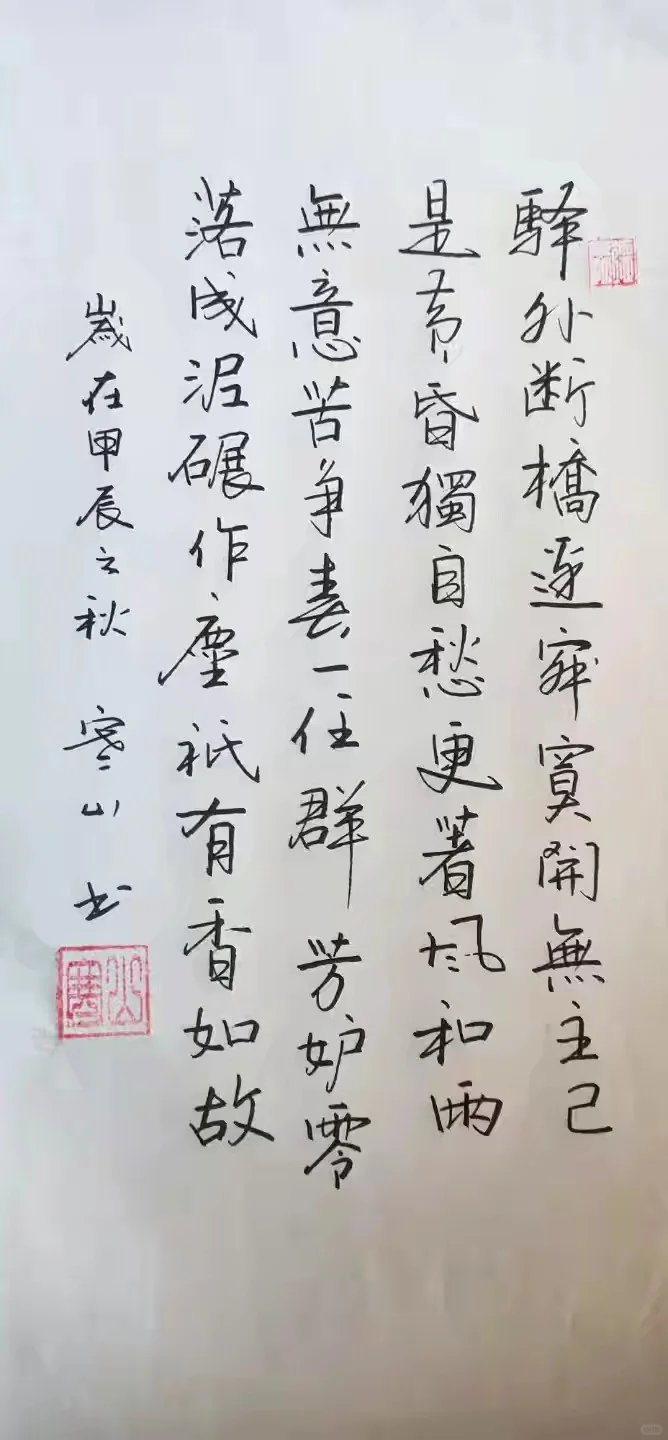 驿外断橋邊寂寞開無主已
是黄昏獨自愁更著風和雨
無意苦争春一任群芳妒零
落成泥碾作塵祇有香如故
歲在甲辰之秋 寒山书
山寒